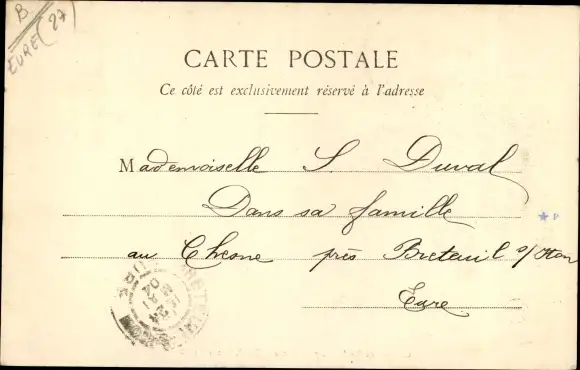 B
EURE (27)
CARTE POSTALE
Ce côté est exclusivement réservé à l'adresse
Mademoiselle S. Duval
Dans sa famille
au Chesne près Breteuil s/Iton
Eure
P